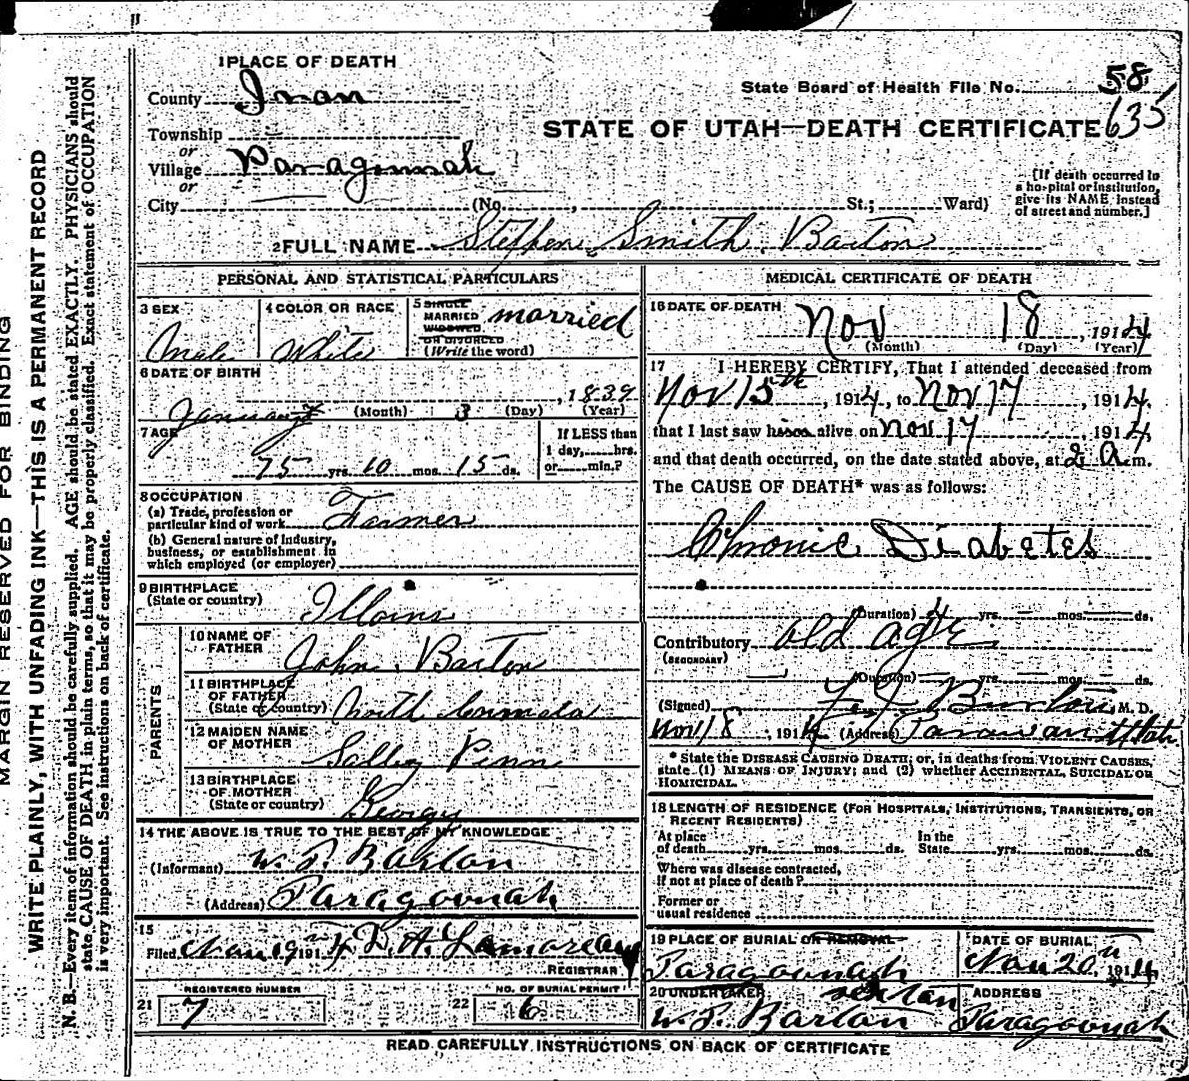 MARGIN RESERVED FOR BINDING
WRITE PLAINLY, WITH UNFADING INK—THIS IS A PERMANENT RECORD
N. B.—Every item of information should be carefully supplied. AGE should be stated EXACTLY. PHYSICIANS should
state CAUSE OF DEATH in plain terms, so that it may be properly classified. Exact statement of OCCUPATION
is very important. See instructions on back of certificate.
1 PLACE OF DEATH
County Iron
State Board of Health File No. 58
635
STATE OF UTAH—DEATH CERTIFICATE
Township
or
Village Paragoonah
or
City (No. , St.; Ward)
[If death occurred in
a hospital or institution,
give its NAME instead
of street and number.]
2 FULL NAME Stephen Smith Barton
PERSONAL AND STATISTICAL PARTICULARS
3 SEX
Male
4 COLOR OR RACE
White
5 SINGLE
MARRIED
WIDOWED
OR DIVORCED
(Write the word)
married
6 DATE OF BIRTH
January 3, 1839
(Month) (Day) (Year)
7 AGE
75 yrs. 10 mos. 15 ds.
If LESS than
1 day, hrs.
or min.?
8 OCCUPATION
(a) Trade, profession or
particular kind of work Farmer
(b) General nature of Industry,
business, or establishment in
which employed (or employer)
9 BIRTHPLACE
(State or country)
Illoins
PARENTS
10 NAME OF
FATHER
John Barton
11 BIRTHPLACE
OF FATHER
(State or country) North
12 MAIDEN NAME
OF MOTHER
Salley Penn
13 BIRTHPLACE
OF MOTHER
(State or country)
14 THE ABOVE IS TRUE TO THE BEST OF MY KNOWLEDGE
(Informant) W. P. Barton
(Address) Paragoonah
15
Filed Nov 19th 1914 D. A. Lamoreaux
REGISTRAR
21 REGISTERED NUMBER
7
22 NO. OF BURIAL PERMIT
6
MEDICAL CERTIFICATE OF DEATH
16 DATE OF DEATH
Nov 18, 1914
(Month) (Day) (Year)
17 I HEREBY CERTIFY, That I attended deceased from
Nov 15th, 1914, to Nov 17, 1914,
that I last saw h alive on Nov 17 1914,
and that death occurred, on the date stated above, at 2 A. m.
The CAUSE OF DEATH* was as follows:
Chronic Diabetes
(Duration) 4 yrs. — mos. ds.
Contributory old age
(SECONDARY)
(Duration) yrs. mos. ds.
(Signed) Burton, M. D.
Nov 18, 1914 (Address) Parowan Utah
* State the DISEASE CAUSING DEATH; or, in deaths from VIOLENT CAUSES,
state (1) MEANS OF INJURY; and (2) whether ACCIDENTAL, SUICIDAL OR
HOMICIDAL.
18 LENGTH OF RESIDENCE (FOR HOSPITALS, INSTITUTIONS, TRANSIENTS, OR
RECENT RESIDENTS)
At place
of death yrs. mos. ds.
In the
State yrs. mos. ds.
Where was disease contracted,
if not at place of death?
Former or
usual residence
19 PLACE OF BURIAL OR REMOVAL
Paragoonah
DATE OF BURIAL
Nov 20th, 1914
20 UNDERTAKER sexton
W. P. Barton
ADDRESS
Paragoonah
READ CAREFULLY INSTRUCTIONS ON BACK OF CERTIFICATE